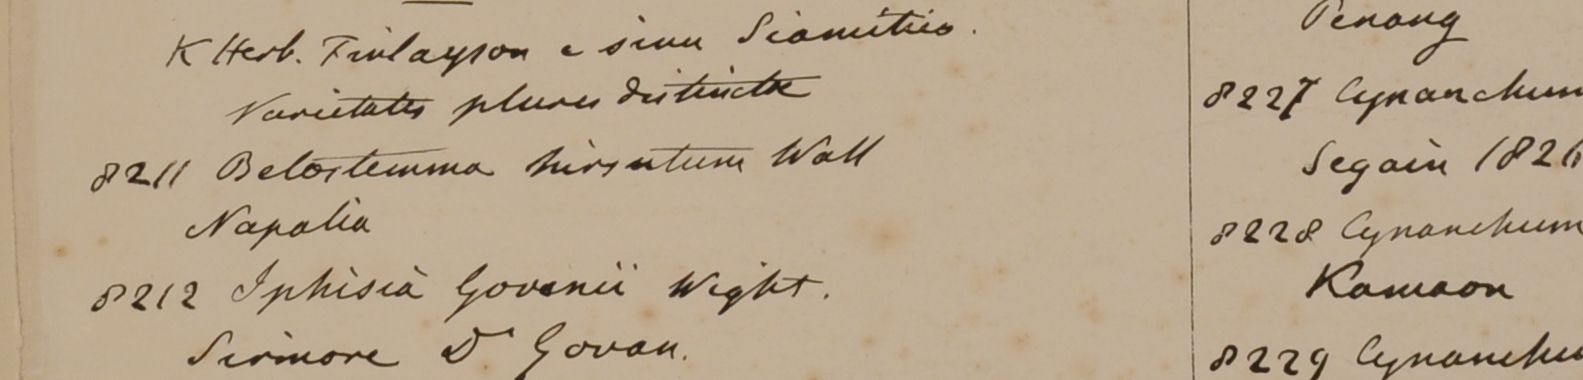 K Herb. Finlayson e sinu Siamitico.
Varietates plures distinctæ
8211 Belostemma hirsutum Wall
Napalia
8212 Iphisia Govanii Wight.
Sirmore Dr Govan.
Penang
8227 Cynanchum
Segain 1826
8228 Cynanchum
Kamaon
8229 Cynanchu